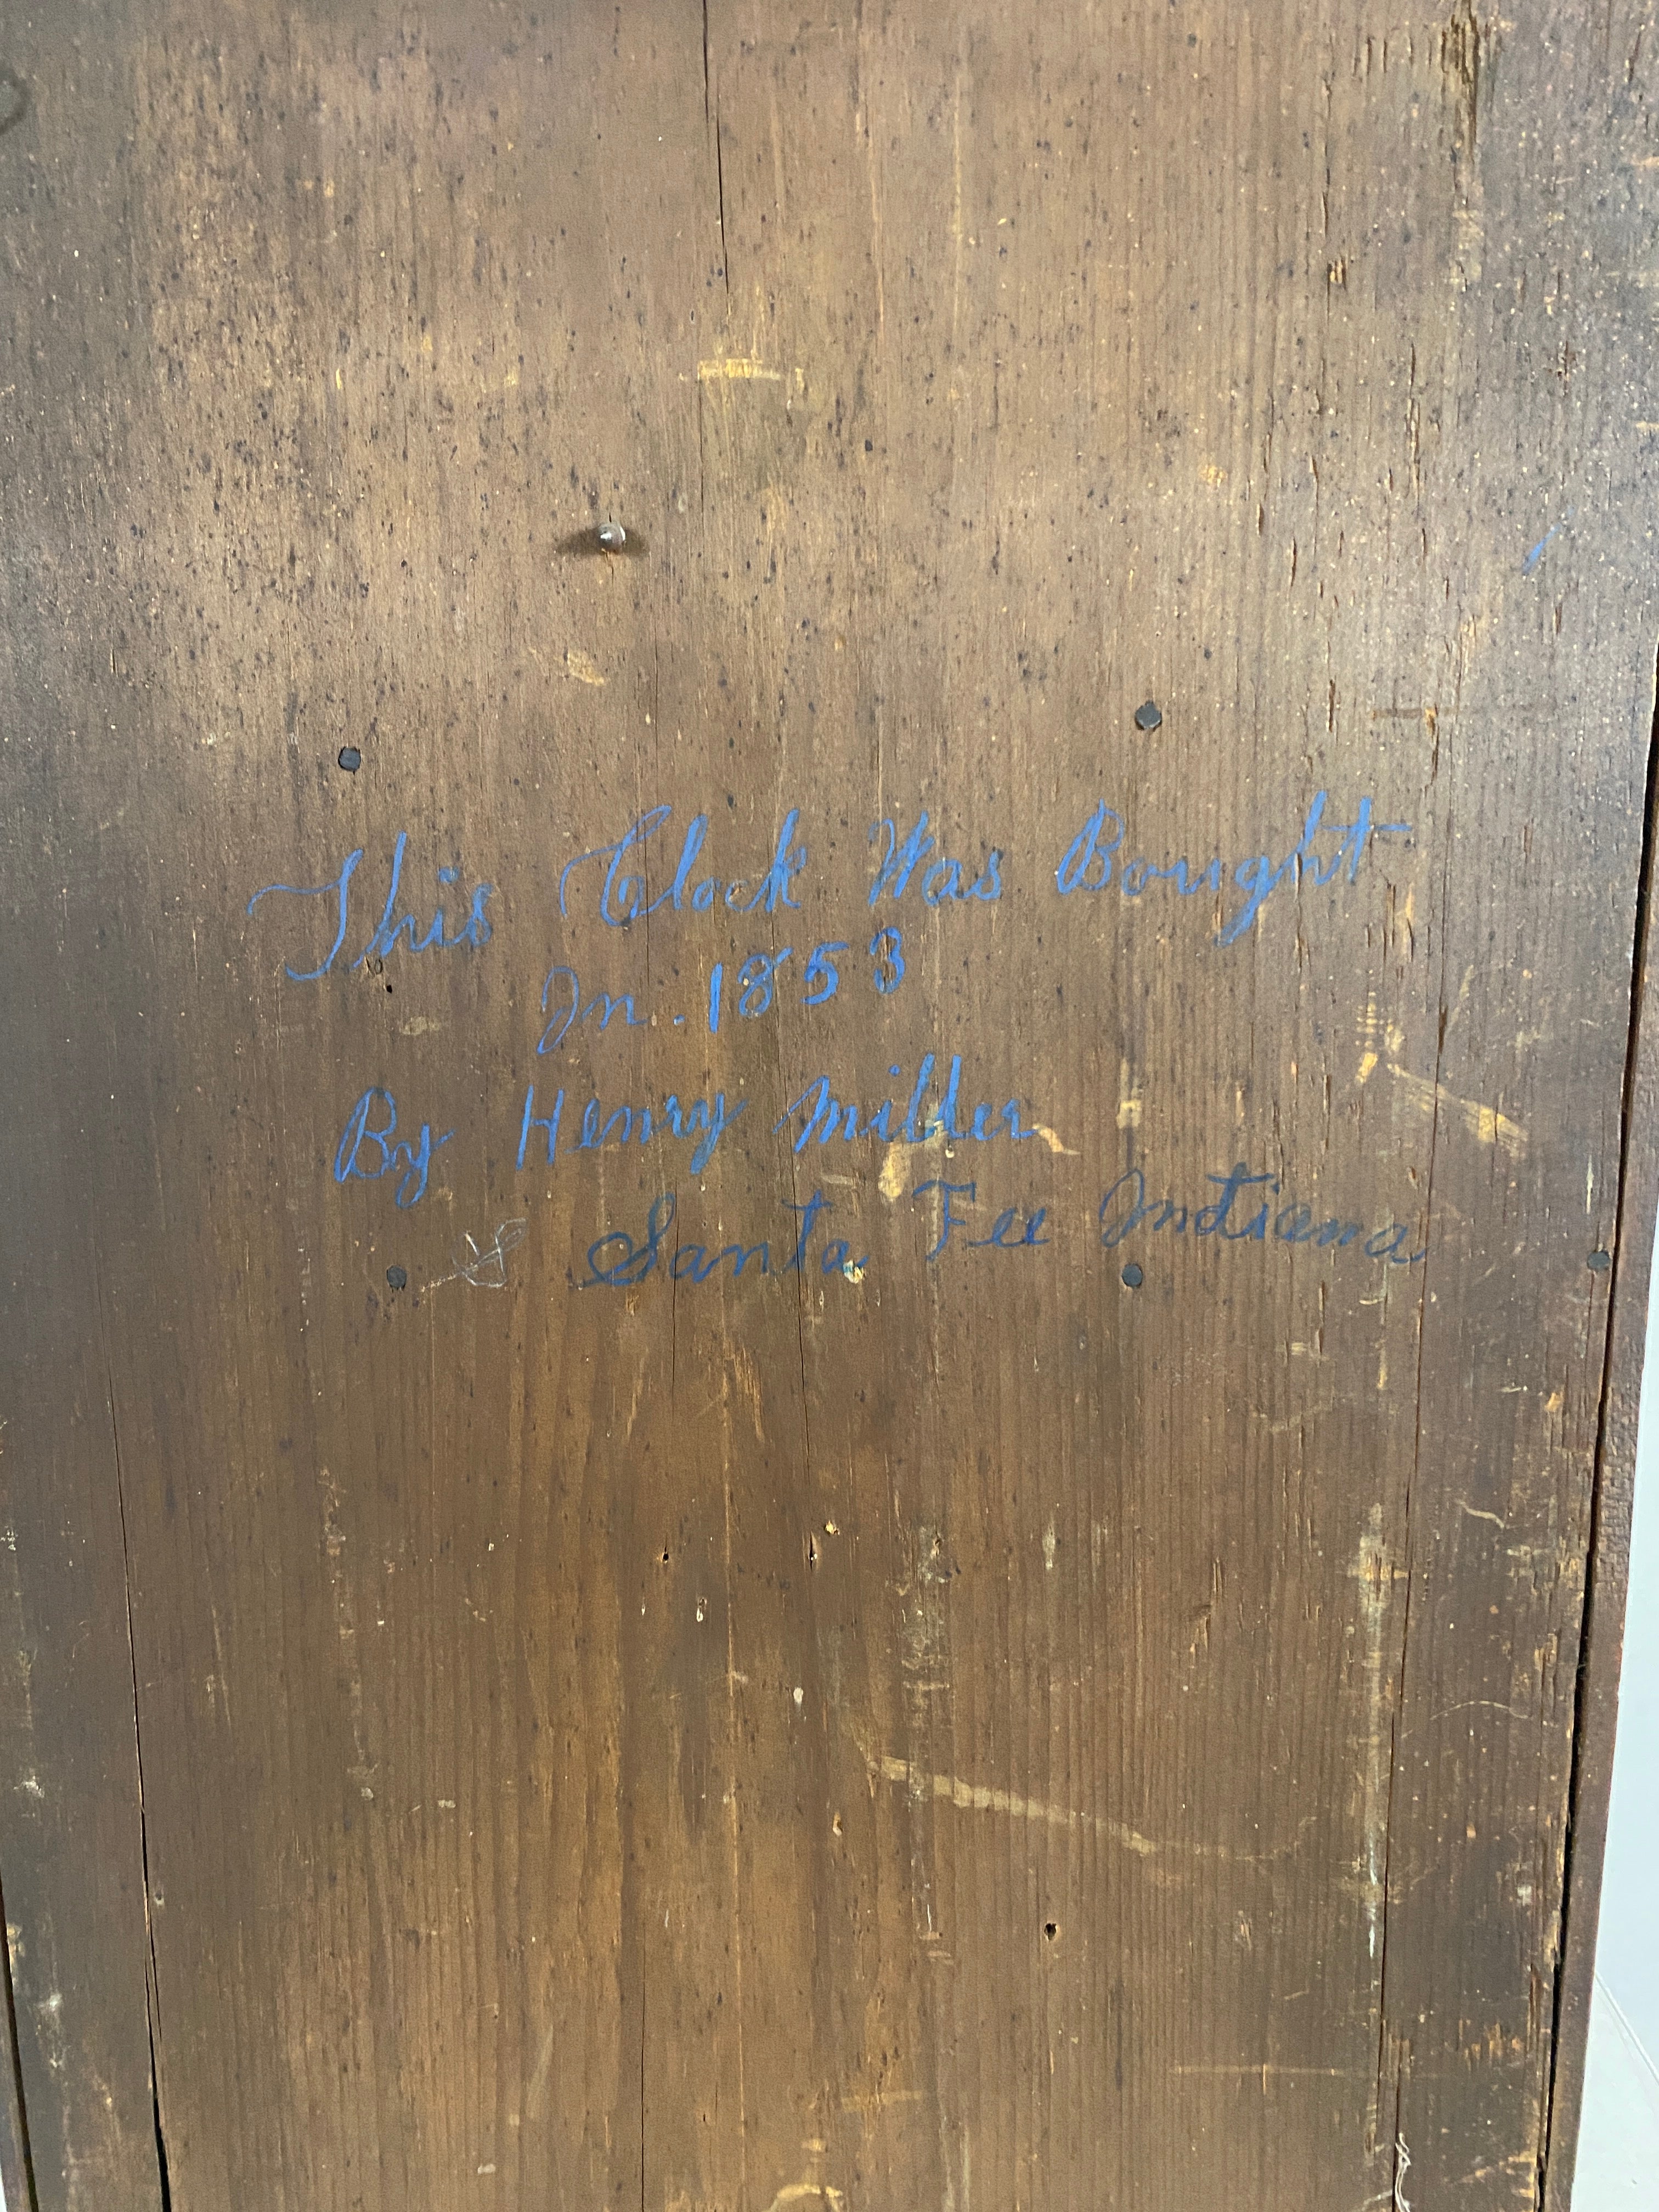 This Clock Was Bought
In. 1853
By Henry Miller
S Santa Fee Indiana